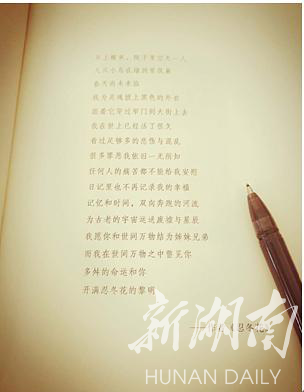 早上醒来，院子里空无一人
几只小鸟在墙洞里筑巢
春天尚未来临
我为灵魂披上黑色的外衣
跟着它穿过窄门到大街上去
我在世上已经活了很久
看过足够多的悲伤与混乱
很多罪恶我依旧一无所知
任何人的痛苦都不能给我安慰
日记里也不再记录我的幸福
记忆和时间，双向奔跑的河流
为古老的宇宙运送废墟与星辰
我愿你和世间万物结为姊妹兄弟
而我在世间万物之中瞥见你
多舛的命运和你
开满忍冬花的黎明
《忍冬花》
新湖南
HUNAN DAILY